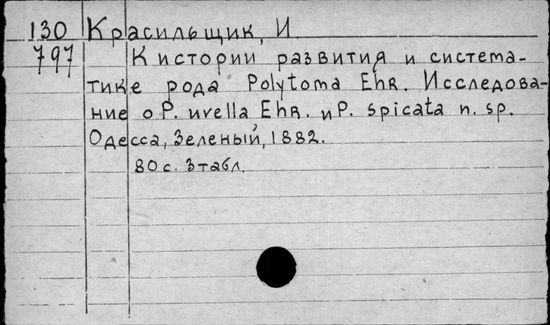 130 Красильщик, И.
797 К истории развития и система-
тике рода Polytoma Ehr. Исследова-
ние о P. uvella Ehr. и P. spicata n. sp.
Одесса, Зеленый, 1882.
80 с. 3 табл.